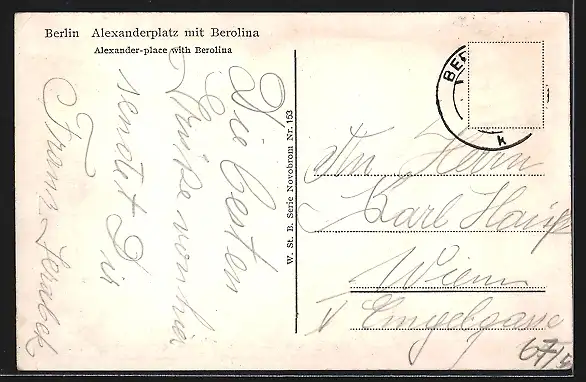 Berlin Alexanderplatz mit Berolina
Alexander-place with Berolina
Die besten
Grüße von hier
sendet Dir
Franz
W. St. B. Serie Novobrom Nr. 153
BER
k
An Herrn
Karl
Wien
V
67/5